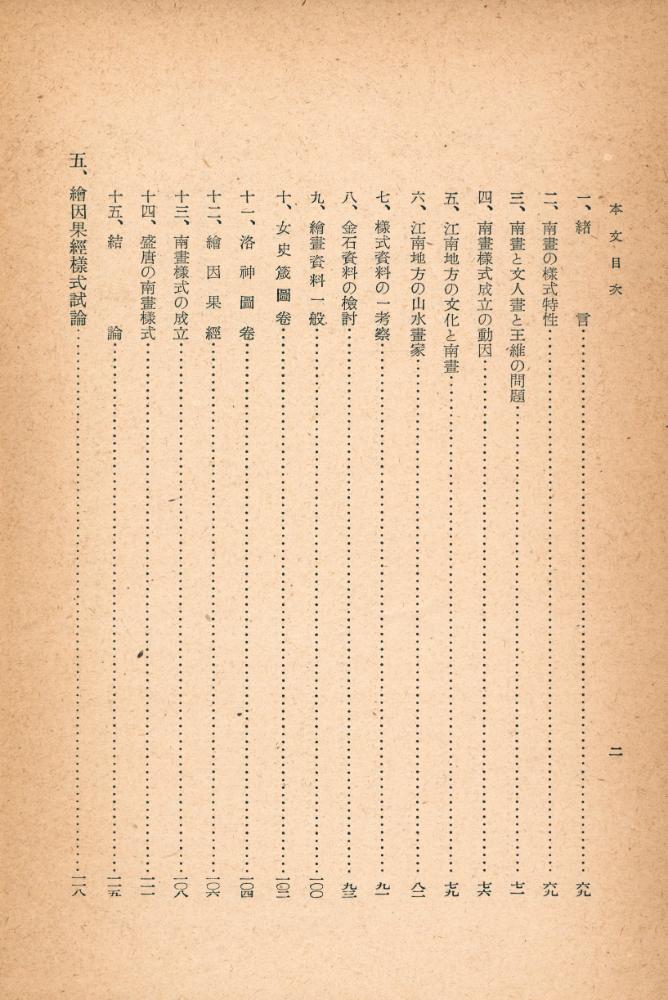 本文目次
二
一、緒言……六九
二、南畫の樣式特性……六九
三、南畫と文人畫と王維の問題……七一
四、南畫樣式成立の動因……七六
五、江南地方の文化と南畫……七九
六、江南地方の山水畫家……八二
七、樣式資料の一考察……九一
八、金石資料の檢討……九三
九、繪畫資料一般……一〇〇
十、女史箴圖卷……一〇二
十一、洛神圖卷……一〇四
十二、繪因果經……一〇六
十三、南畫樣式の成立……一〇八
十四、盛唐の南畫樣式……一一一
十五、結論……一一五
五、繪因果經樣式試論……一一八